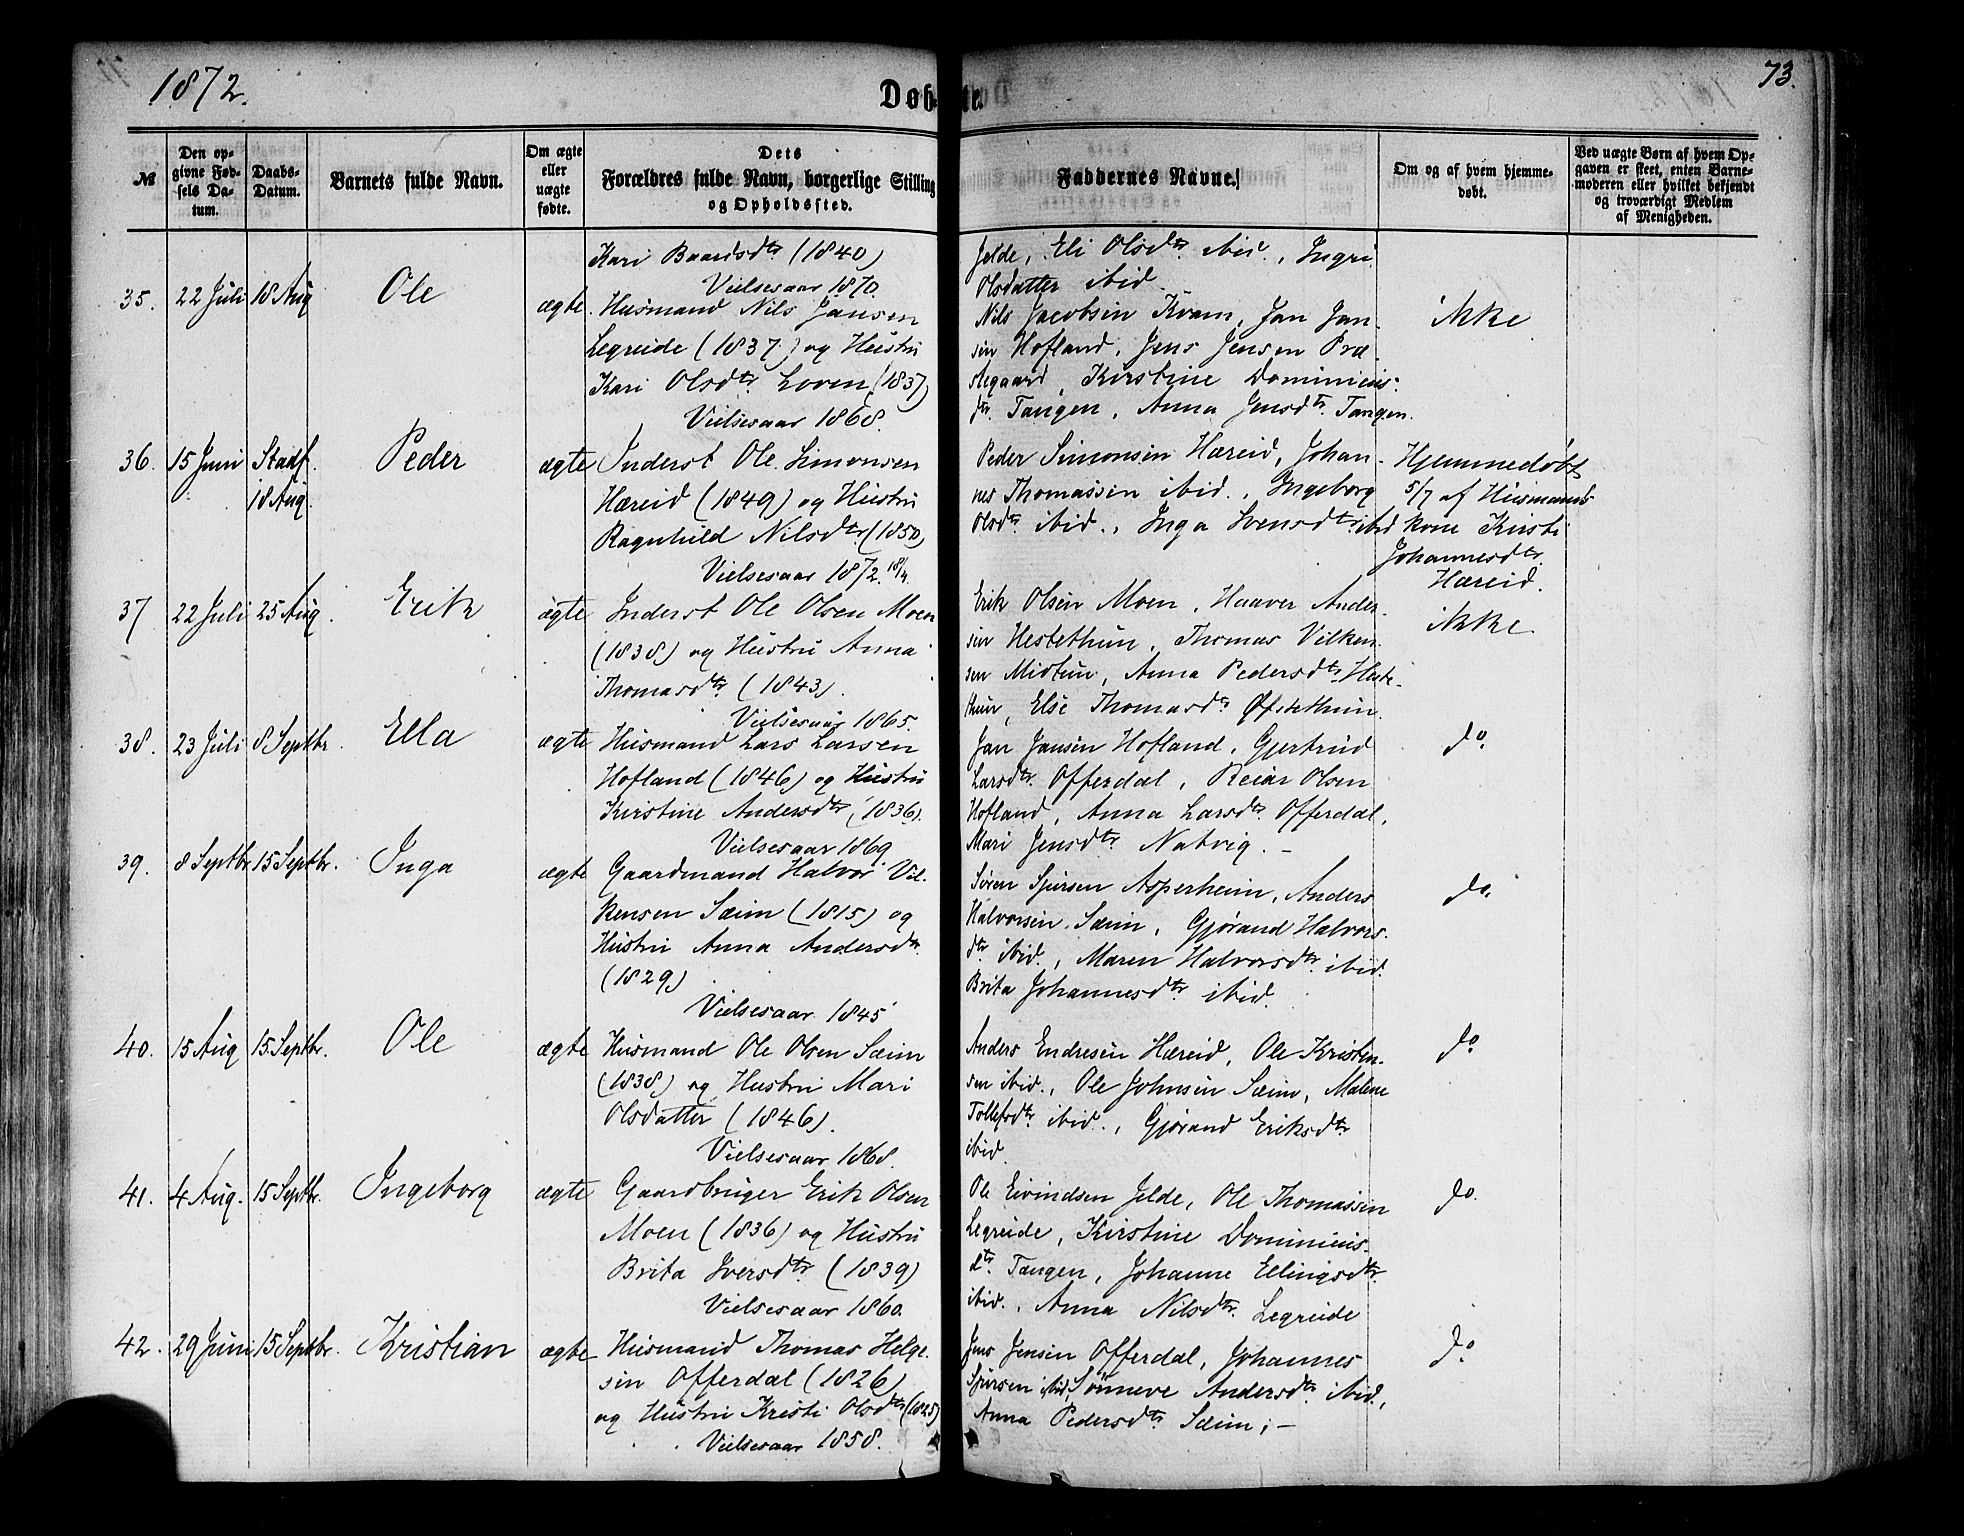 1872.
Døbte.
73.
№
Den opgivne Fødsels Datum.
Daabs-Datum.
Barnets fulde Navn.
Om ægte eller uægte fødte.
Dets Forældres fulde Navn, borgerlige Stilling og Opholdssted.
Faddernes Navne.
Om og af hvem hjemmedøbt.
Ved uægte Børn af hvem Opgaven er skeet, enten Barnemoderen eller hvilket bekjendt og troværdigt Medlem af Menigheden.
Kari Baardsdtr (1840)
Vielsesaar 1870.
Jelde, Eli Olsdtr ibid., Ingri
Olsdatter ibid.
35. 22 Juli 18 Aug Ole ægte.
Husmand Nils Jansen
Legreide (1837) og Hustru
Kari Olsdtr. Loven (1837)
Vielsesaar 1868.
Nils Jacobsen Kvam, Jan Jan-
sen Hofland, Jens Jensen Præ-
stegaard, Kirstine Dominicus-
dtr. Tangen, Anna Jensdtr. Tangen.
ikke
36. 15 Juni Stadf. 18 Aug Peder ægte
Inderst Ole Simonsen
Hæreid (1849) og Hustru
Ragnhild Nilsdtr (1850)
Vielsesaar 1872. 18/4.
Peder Simonsen Hæreid, Johan-
nes Thomassen ibid., Ingeborg
Olsdtr ibid., Inga Svensdtr ibid
Hjemmedøbt
5/7 af Husmands
kone Kirsti
Johannesdtr.
Hæreid.
37 22 Juli 25 Aug. Erik ægte
Inderst Ole Olsen Moen
(1838) og Hustru Anna
Thomasdtr. (1843).
Vielsesaar 1865.
Erik Olsen Moen, Haaver Ander-
sen Hestethun, Thomas Vilken-
sen Midtun, Anna Pedersdtr Heste-
thun, Else Thomasdtr. Øfstethun.
ikke
38. 23 Juli 8 Septbr. Ella ægte
Husmand Lars Larsen
Hofland (1846) og Hustru
Kirstine Andersdtr (1836).
Vielsesaar 1869.
Jan Jansen Hofland, Gjertrud
Larsdtr. Offerdal, Reiar Olsen
Hofland, Anna Larsdtr. Offerdal,
Mari Jensdtr Natvig. –
do.
39. 8 Septbr 15 Septbr. Inga ægte
Gaardmand Halvor Vil-
kensen Sæim (1815) og
Hustru Anna Andersdtr.
(1829)
Vielsesaar 1845
Søren Sjursen Asperheim, Anders
Halvorsen Sæim, Gjørand Halvors-
dtr ibid., Maren Halvorsdtr. ibid.
Brita Johannesdtr. ibid.
do.
40. 15 Aug 15 Septbr. Ole ægte
Husmand Ole Olsen Sæim
(1838) og Hustru Mari
Olsdatter (1846).
Vielsesaar 1868.
Anders Endresen Hæreid, Ole Kristen-
sen ibid., Ole Johnsen Sæim, Malene
Tollefsdtr ibid., Gjørand Eriksdtr
ibid
do
41. 4 Aug. 15 Septbr. Ingeborg ægte
Gaardbruger Erik Olsen
Moen (1836) og Hustru
Brita Iversdtr. (1839)
Vielsesaar 1860.
Ole Eivindsen Jelde, Ole Thomassen
Legreide, Kirstine Dominicus-
dtr. Tangen, Johanne Ellingsdtr.
ibid., Anna Nilsdtr. Legreide
do.
42. 29 Juni 15 Septbr. Kristian ægte
Husmand Thomas Helge-
sen Offerdal (1826)
og Hustru Kristi Olsdtr (1825)
Vielsesaar 1858.
Jens Jensen Offerdal, Johannes
Sjursen ibid, Sønneve Andersdtr ibid.,
Anna Pedersdtr Sæim; –
do